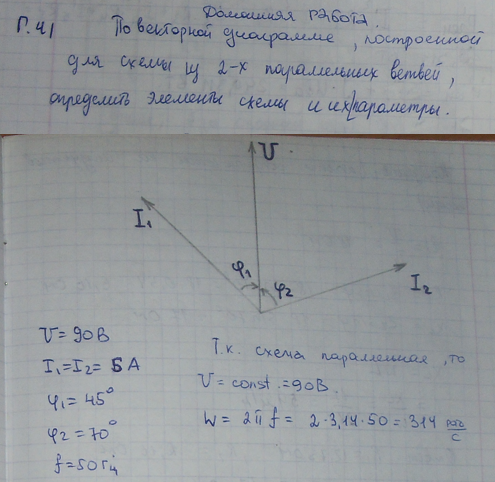 Домашняя работа.
Г.41 По векторной диаграмме, построенной
для схемы из 2-х параллельных ветвей,
определить элементы схемы и их параметры.
U
I₁
φ₁
φ₂
I₂
U = 90 В
I₁ = I₂ = 5 А
φ₁ = 45°
φ₂ = 70°
f = 50 Гц
Т.к. схема параллельная, то
U = const. = 90 В.
W = 2πf = 2·3,14·50 = 314 рад/с